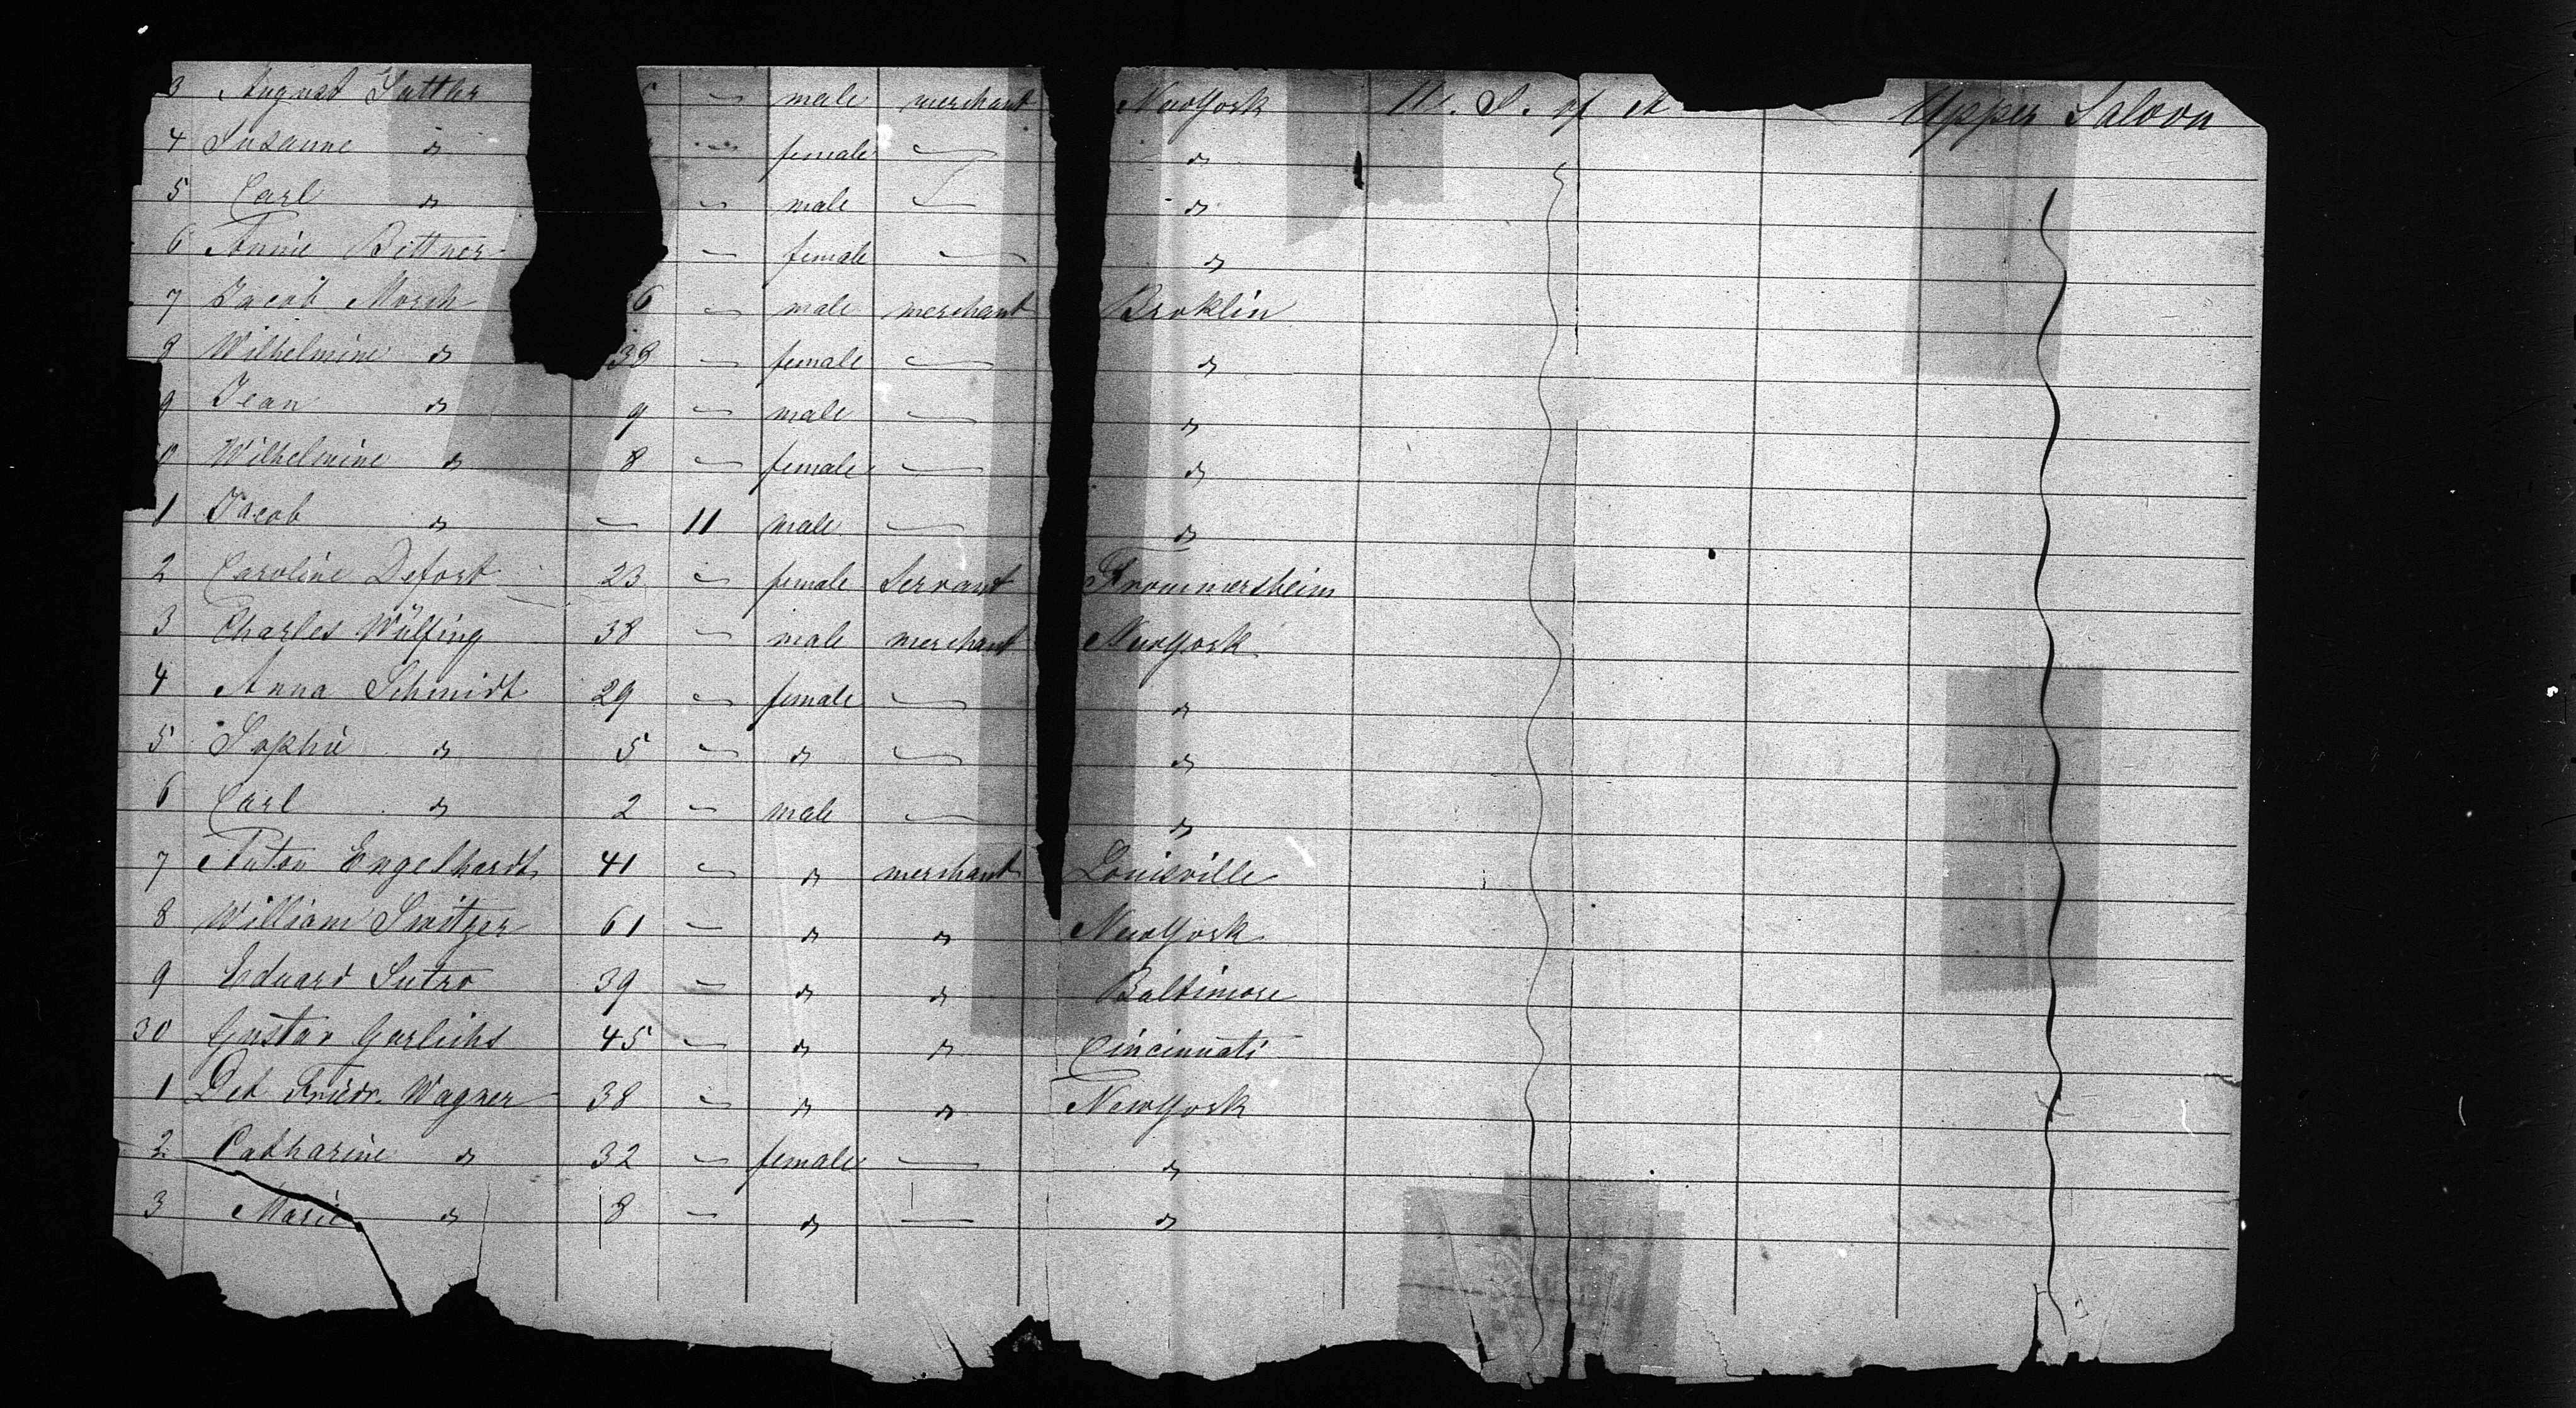 3 August Sattler — male merchant NewYork U. S. of A Upper Saloon
4 Susanne " — female — "
5 Carl " — male — "
6 Annie Bittner — female — "
7 Jacob Morch 6 — male merchant Broklin
8 Wilhelmine " 38 — female — "
9 Jean " 9 — male — "
0 Wilhelmine " 8 — female — "
1 Jacob " — 11 male — "
2 Caroline Defort 23 — female Servant Frommersheim
3 Charles Wülfing 38 — male merchant NewYork
4 Anna Schmidt 29 — female — "
5 Sophie " 5 — " — "
6 Carl " 2 — male — "
7 Anton Engelhardt 41 — " merchant Louisville
8 William Switzer 61 — " " NewYork
9 Eduard Sutro 39 — " " Baltimore
30 Gustav Gerlichs 45 — " " Cincinnati
1 Det Friedr. Wagner 38 — " " NewYork
2 Catharine " 32 — female — "
3 Marie " 8 — " — "